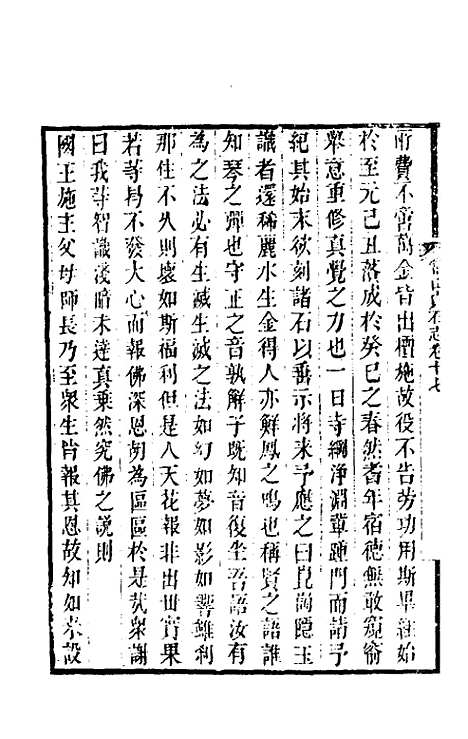 所費不啻萬金皆出檀施故役不告勞功用斯畢經始
於至元己丑落成於癸巳之春然耆年宿德無敢窺衞
舉意重修真覺之力也一日寺綱淨淵輩踵門而請予
紀其始末欲刻諸石以垂示將來予應之曰崑崗隱玉
識者還稀麗水生金得人亦鮮鳳之鳴也稱賢之語誰
知琴之彈也守正之音孰解子既知音復坐吾語汝有
為之法必有生滅生滅之法如幻如夢如影如響雖剎
那住不久則壞如斯福利但是人天花報非出世實果
若等昜不發大心而報佛深恩胡為區區於是哉衆謝
曰我等智識淺暗未達真乗然究佛之說則
國王施主父母師長乃至衆生皆報其恩故知如來設
石志卷十七